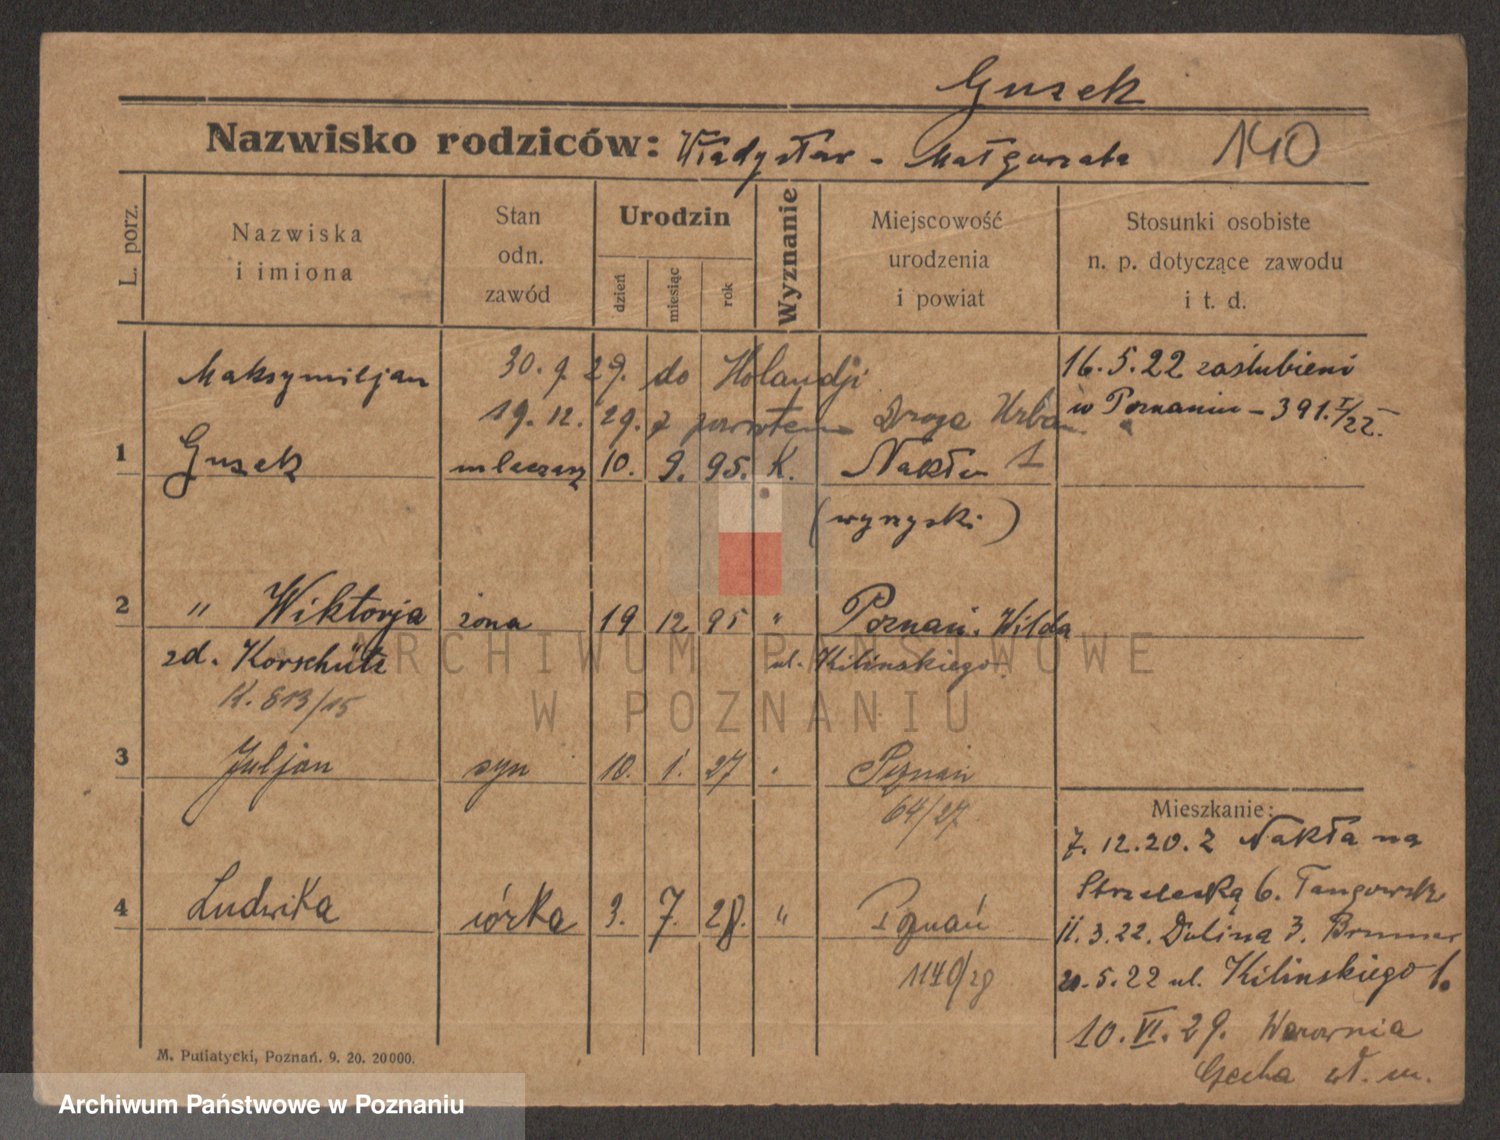 Gusek
Nazwisko rodziców: Władysław - Małgorzata 140
L. porz.
Nazwiska
i imiona
Stan
odn.
zawód
Urodzin
dzień
miesiąc
rok
Wyznanie
Miejscowość
urodzenia
i powiat
Stosunki osobiste
n. p. dotyczące zawodu
i t. d.
Maksymiljan 30. 9. 29. do Holandji 16. 5. 22 zaślubieni
19. 12. 29. z powrotem Droga Urban w Poznaniu - 391. I/22.
1 Gusek mleczarz 10. 9. 95. K. Nakło 1
(wyrzyski)
2 " Wiktorja żona 19 12 95 " Poznań. Wilda
zd. Korschütz ul. Kilinskiego
K. 813/15
3 Juljan syn 10. 1. 27 " Poznań
64/27
4 Ludwika córka 3. 7. 28. " Poznań
1140/28
Mieszkanie:
7. 12. 20. z Nakła na
Strzelecką 6.
11. 3. 22. Dolina 3. Brunner
20. 5. 22 ul. Kilinskiego 6.
10. VI. 29.
wł. m.
M. Putiatycki, Poznań. 9. 20. 20000.
ARCHIWUM PAŃSTWOWE
W POZNANIU
Archiwum Państwowe w Poznaniu